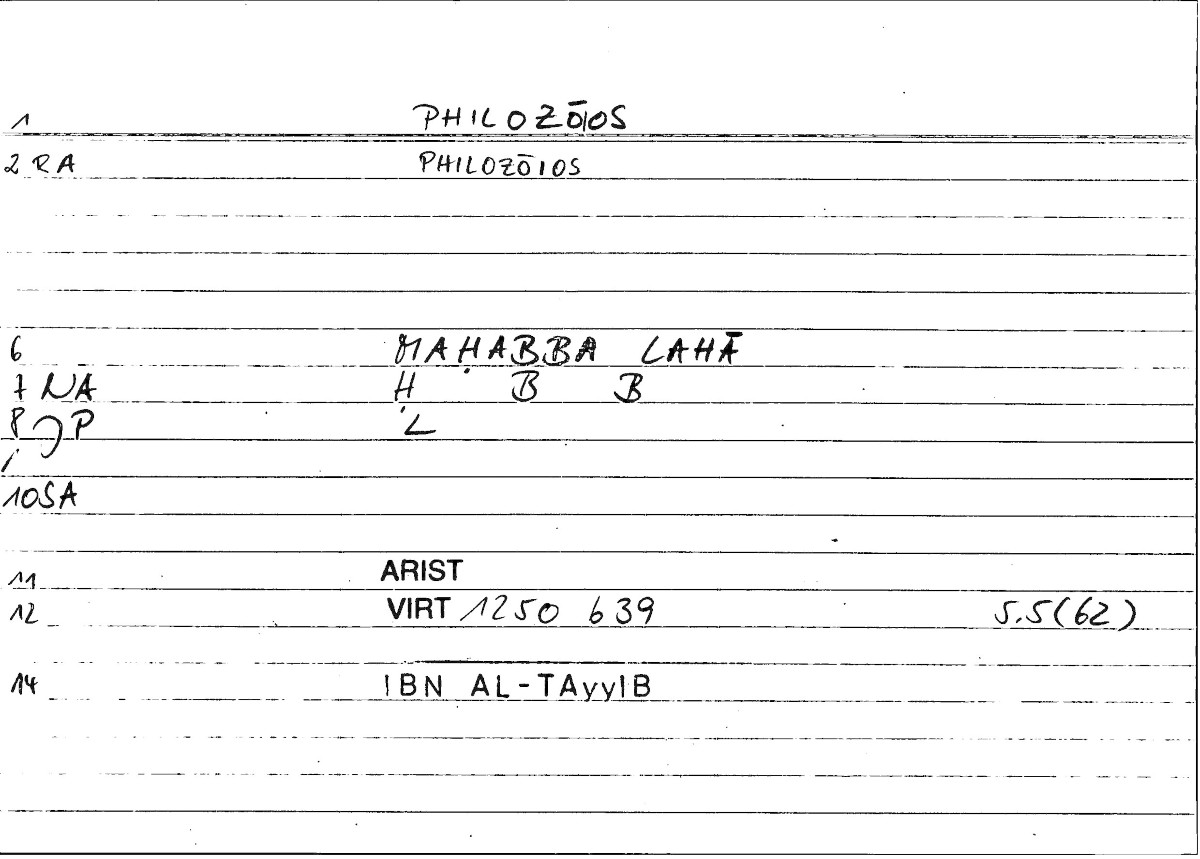 1 PHILOZŌIOS
2 RA PHILOZŌIOS
6 MAḤABBA LAHĀ
7 NA Ḥ B B
8 P L
10 SA
11 ARIST
12 VIRT 1250 b 39 5.5(62)
14 IBN AL-TAyyIB